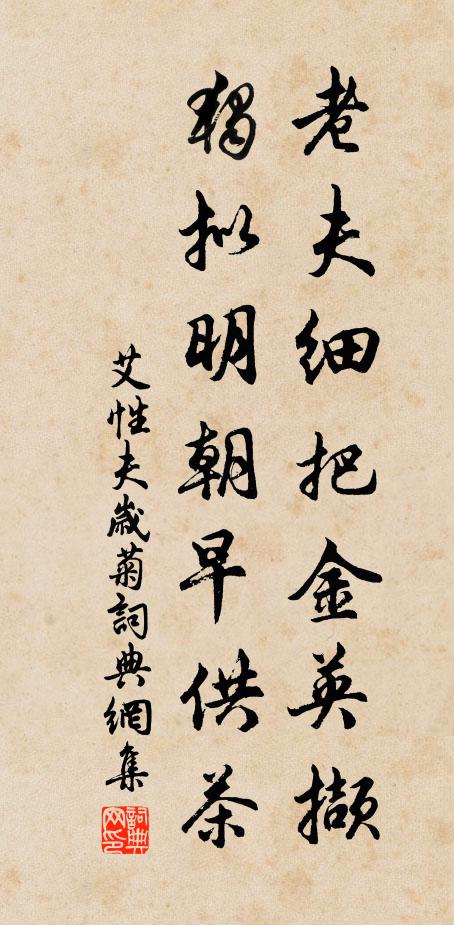 老夫細把金英擷
獨拟明朝早供茶
艾性夫歲菊詞典網集
詞典
网印